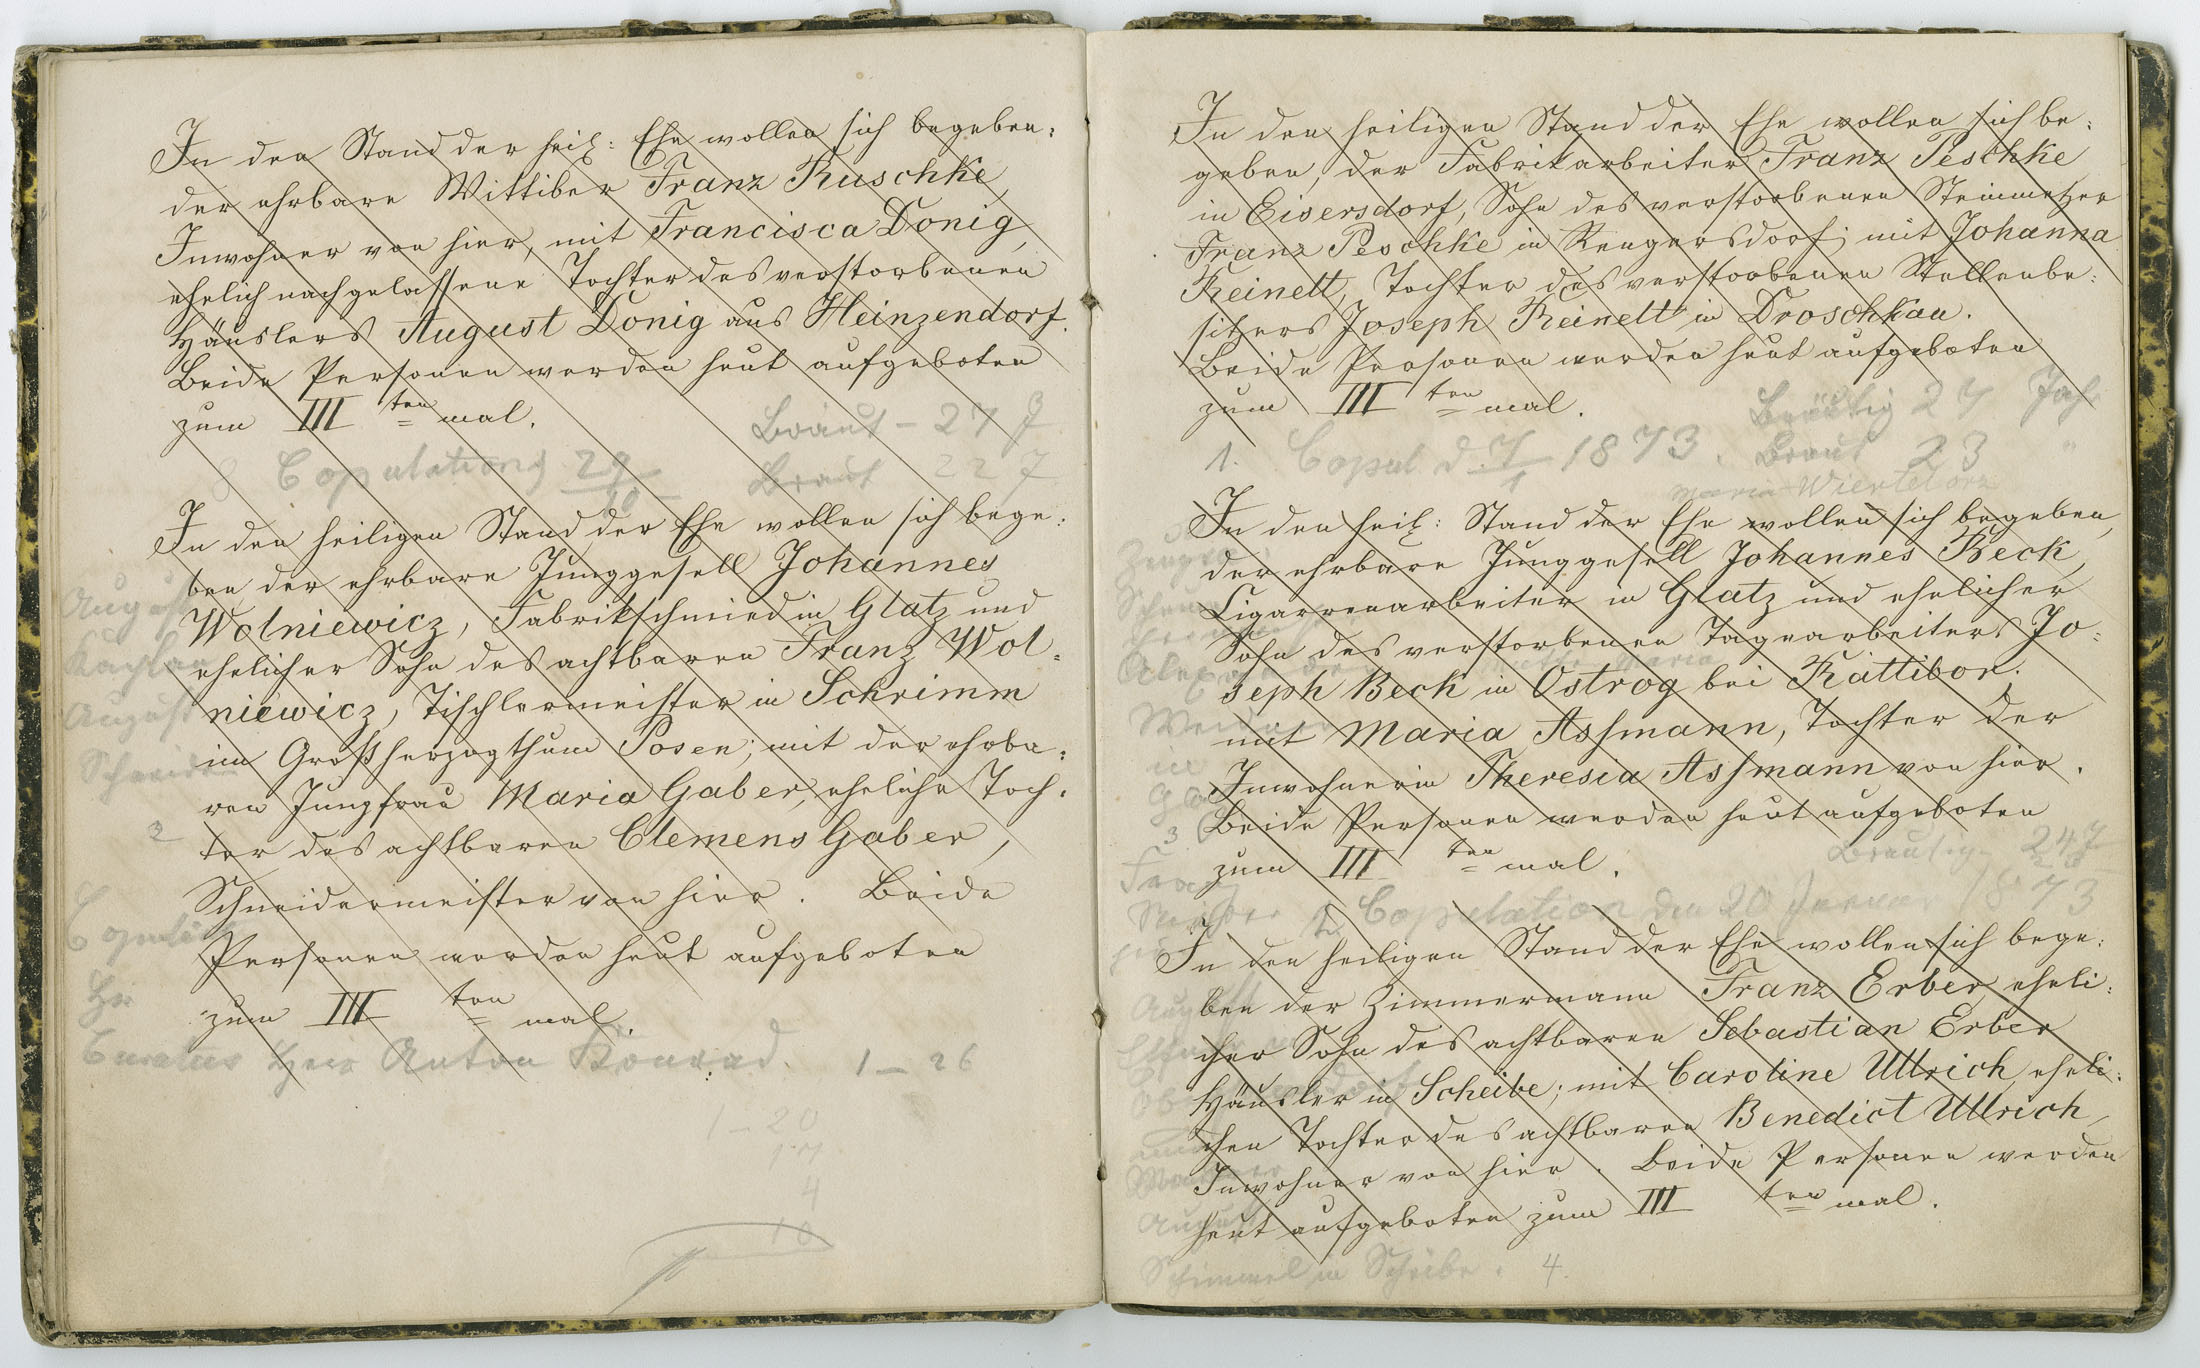 In den Stand der heil: Ehe wollen sich begeben,
der ehrbare Wittiber Franz Ruschke,
Inwohner von hier, mit Francisca Donig,
ehelich nachgelassene Tochter des verstorbenen
Häuslers August Donig aus Heinzendorf.
Beide Personen werden heut aufgeboten
zum III ten mal.
Braut - 27 J
8 Copulationg 29/10 Braut 22 J
In den heiligen Stand der Ehe wollen sich bege:
ben der ehrbare Junggesell Johannes
Wolniewicz, Fabrikschmied in Glatz und
ehelicher Sohn des achtbaren Franz Wol:
niewicz, Tischlermeister in Schrimm
im Großherzogthum Posen; mit der ehrba:
ren Jungfrau Maria Gaber, eheliche Toch:
ter des achtbaren Clemens Gaber,
Schneidermeister von hier. Beide
Personen werden heut aufgeboten
zum III ten mal.
August
Kaplan
August
Schneider
2
Hr
Curatus Herr Anton Konrad. 1 - 26
1 - 20
17
4
10
In den heiligen Stand der Ehe wollen sich be:
geben, der Fabrikarbeiter Franz Peschke
in Eisersdorf, Sohn des verstorbenen Steinmetzer
Franz Peschke in Rengersdorf; mit Johanna
Reinelt, Tochter des verstorbenen Stellenbe:
sitzers Joseph Reinelt in Droschkau.
Beide Personen werden heut aufgeboten
zum III ten mal.
Bräutig 27 Jahr
1. Copul. d. 7/1 1873. Braut 23 "
Maria Wiertelorz
In den heil: Stand der Ehe wollen sich begeben,
der ehrbare Junggesell Johannes Beck,
Cigarrenarbeiter in Glatz und ehelicher
Sohn des verstorbenen Tagearbeiters Jo:
seph Beck in Ostrog bei Rattibor.
mit Maria Assmann, Tochter der
Inwohnerin Theresia Assmann von hier.
Beide Personen werden heut aufgeboten
zum III ten mal.
Bräutig. 24 J
2. Copulation den 20 Januar 1873
In den heiligen Stand der Ehe wollen sich bege:
ben der Zimmermann Franz Erber, eheli:
cher Sohn des achtbaren Sebastian Erber
Häusler in Scheibe; mit Caroline Ullrich eheli:
chen Tochter des achtbaren Benedict Ullrich,
Inwohner von hier. Beide Personen werden
heut aufgeboten zum III ten mal.
August
Schimmel in Scheibe. 4.